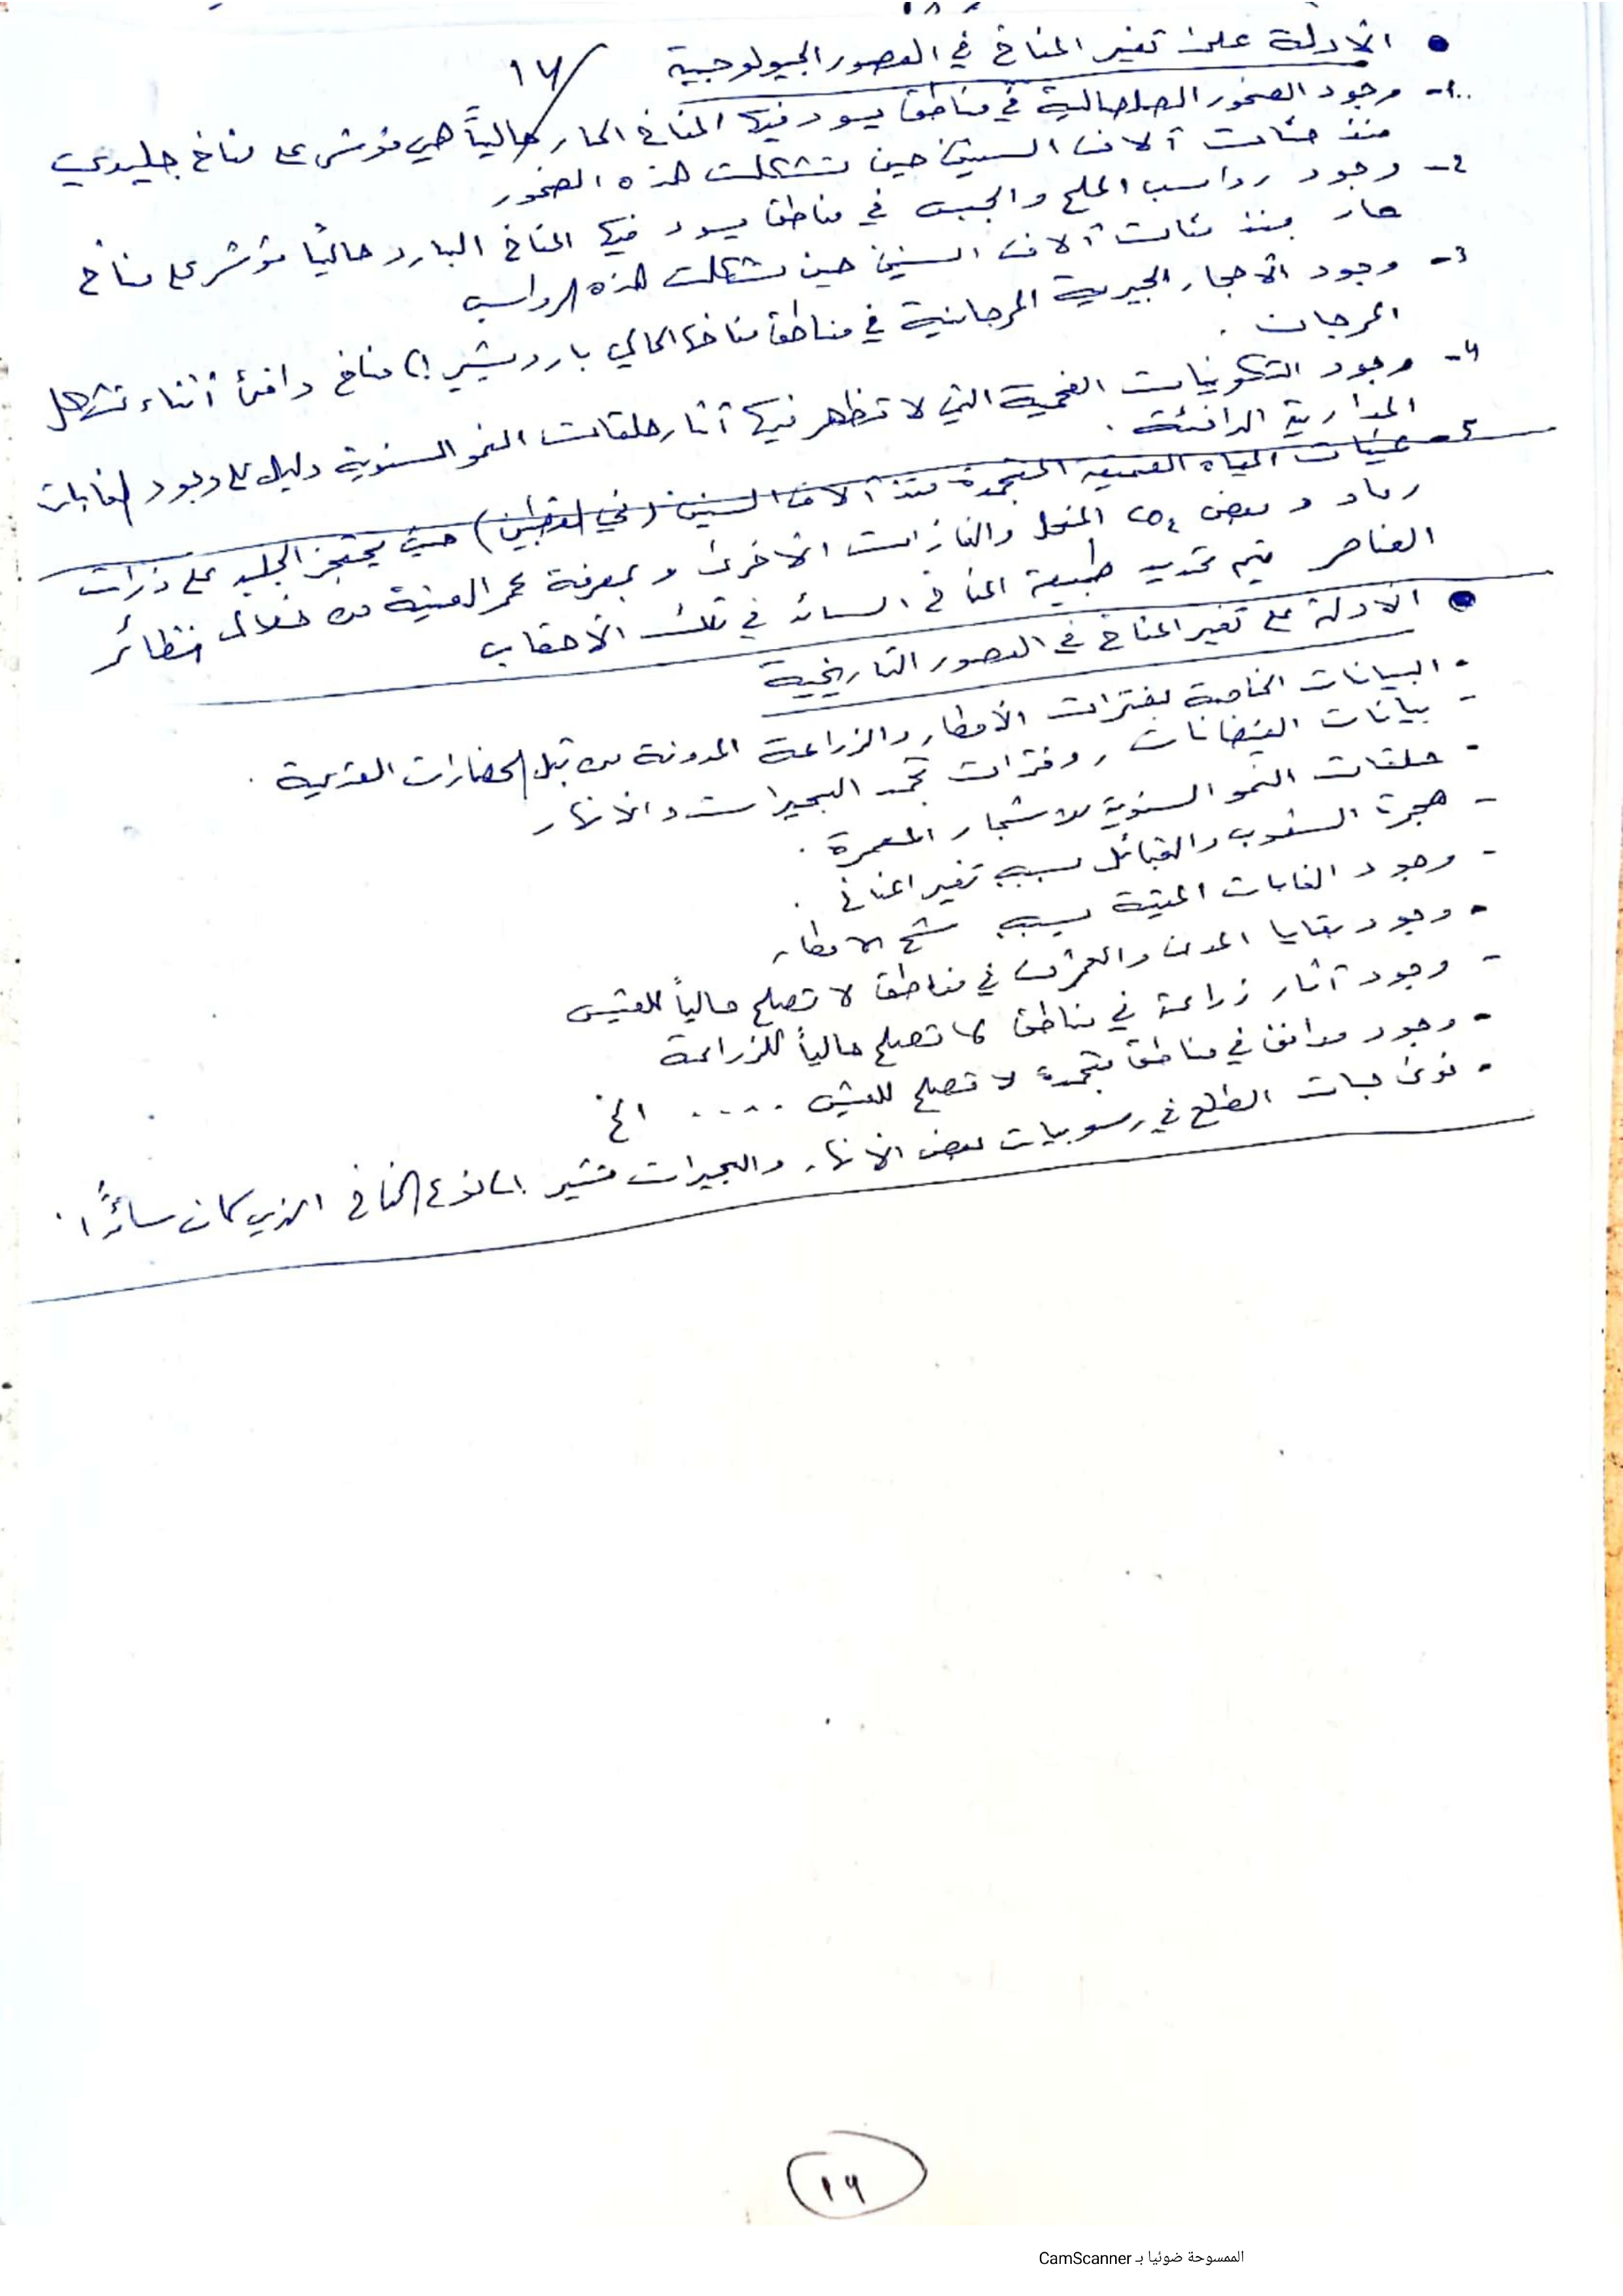 • الأدلة على تغير المناخ في العصور الجيولوجية
١٧/
1- وجود الصخور الصلصالية في مناطق يسود فيها المناخ الحار حالياً هي مؤشر على مناخ جليدي
منذ مئات آلاف السنين حين تشكلت هذه الصخور
2- وجود رواسب الملح والجبس في مناطق يسود فيها المناخ البارد حالياً مؤشر على مناخ
حار منذ مئات آلاف السنين حين تشكلت هذه الرواسب
3- وجود الأحجار الجيرية المرجانية في مناطق مناخها الحالي بارد يشير إلى مناخ دافئ أثناء تشكل
المرجان .
4- وجود التكوينات الفحمية التي لا تظهر فيها آثار حلقات النمو السنوية دليل على وجود الغابات
المدارية الدافئة .
عينات المياه العميقة المتجمدة منذ آلاف السنين (في القطبين) حيث يحتجز الجليد على ذرات
رماد وبعض المنحل والغازات الأخرى وبمعرفة عمر العينة من خلال نظائر
العناصر يتم تحديد طبيعة المناخ السائد في تلك الأحقاب
• الأدلة على تغير المناخ في العصور التاريخية
- البيانات الخاصة بفترات الأمطار والزراعة المدونة من قبل الحضارات القديمة .
- بيانات الفيضانات , وفترات تجمد البحيرات والأنهار
- حلقات النمو السنوية للأشجار المعمرة .
- هجرة الشعوب والقبائل بسبب تغير المناخ .
- وجود الغابات الميتة بسبب شح الأمطار
- وجود بقايا المدن والعمران في مناطق لا تصلح حالياً للعيش
- وجود آثار زراعة في مناطق لا تصلح حالياً للزراعة
- وجود مدافن في مناطق متجمدة لا تصلح للعيش ..... الخ
- نوى حبات الطلع في رسوبيات بعض الأنهار والبحيرات تشير إلى نوع المناخ الذي كان سائداً .
١٦
الممسوحة ضوئيا بـ CamScanner